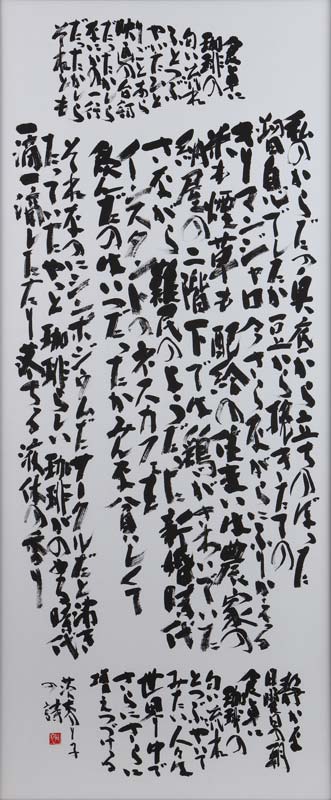 食卓に
珈琲の
匂い流れ
ふとつぶ
やいたひと
りごとあら
映画の台詞
だったかしら
なにかの一行
だったかしら
それとも
私のからだの奥底から立ちのぼった
溜息でしたか豆から挽きたての
キリマンジャロ今さらながらにふりかえる
米も煙草も配給の住まいは農家の
納屋の二階下では鶏がさわいでいた
さながら難民のようだった新婚時代
インスタントのネスカフェを
飲んだのはいつだったかみんな貧しくて
それなのにシンポジウムだサークルだと沸き
たっていたやっと珈琲らしい珈琲がのめる時代
一滴一滴したたり落ちる液体の香り
静かな
日曜日の朝
食卓に
珈琲の
匂い流れ
とつぶやいて
みたい人々は
世界中で
さらにさらに
増えつづける
茨木のり子
の詩